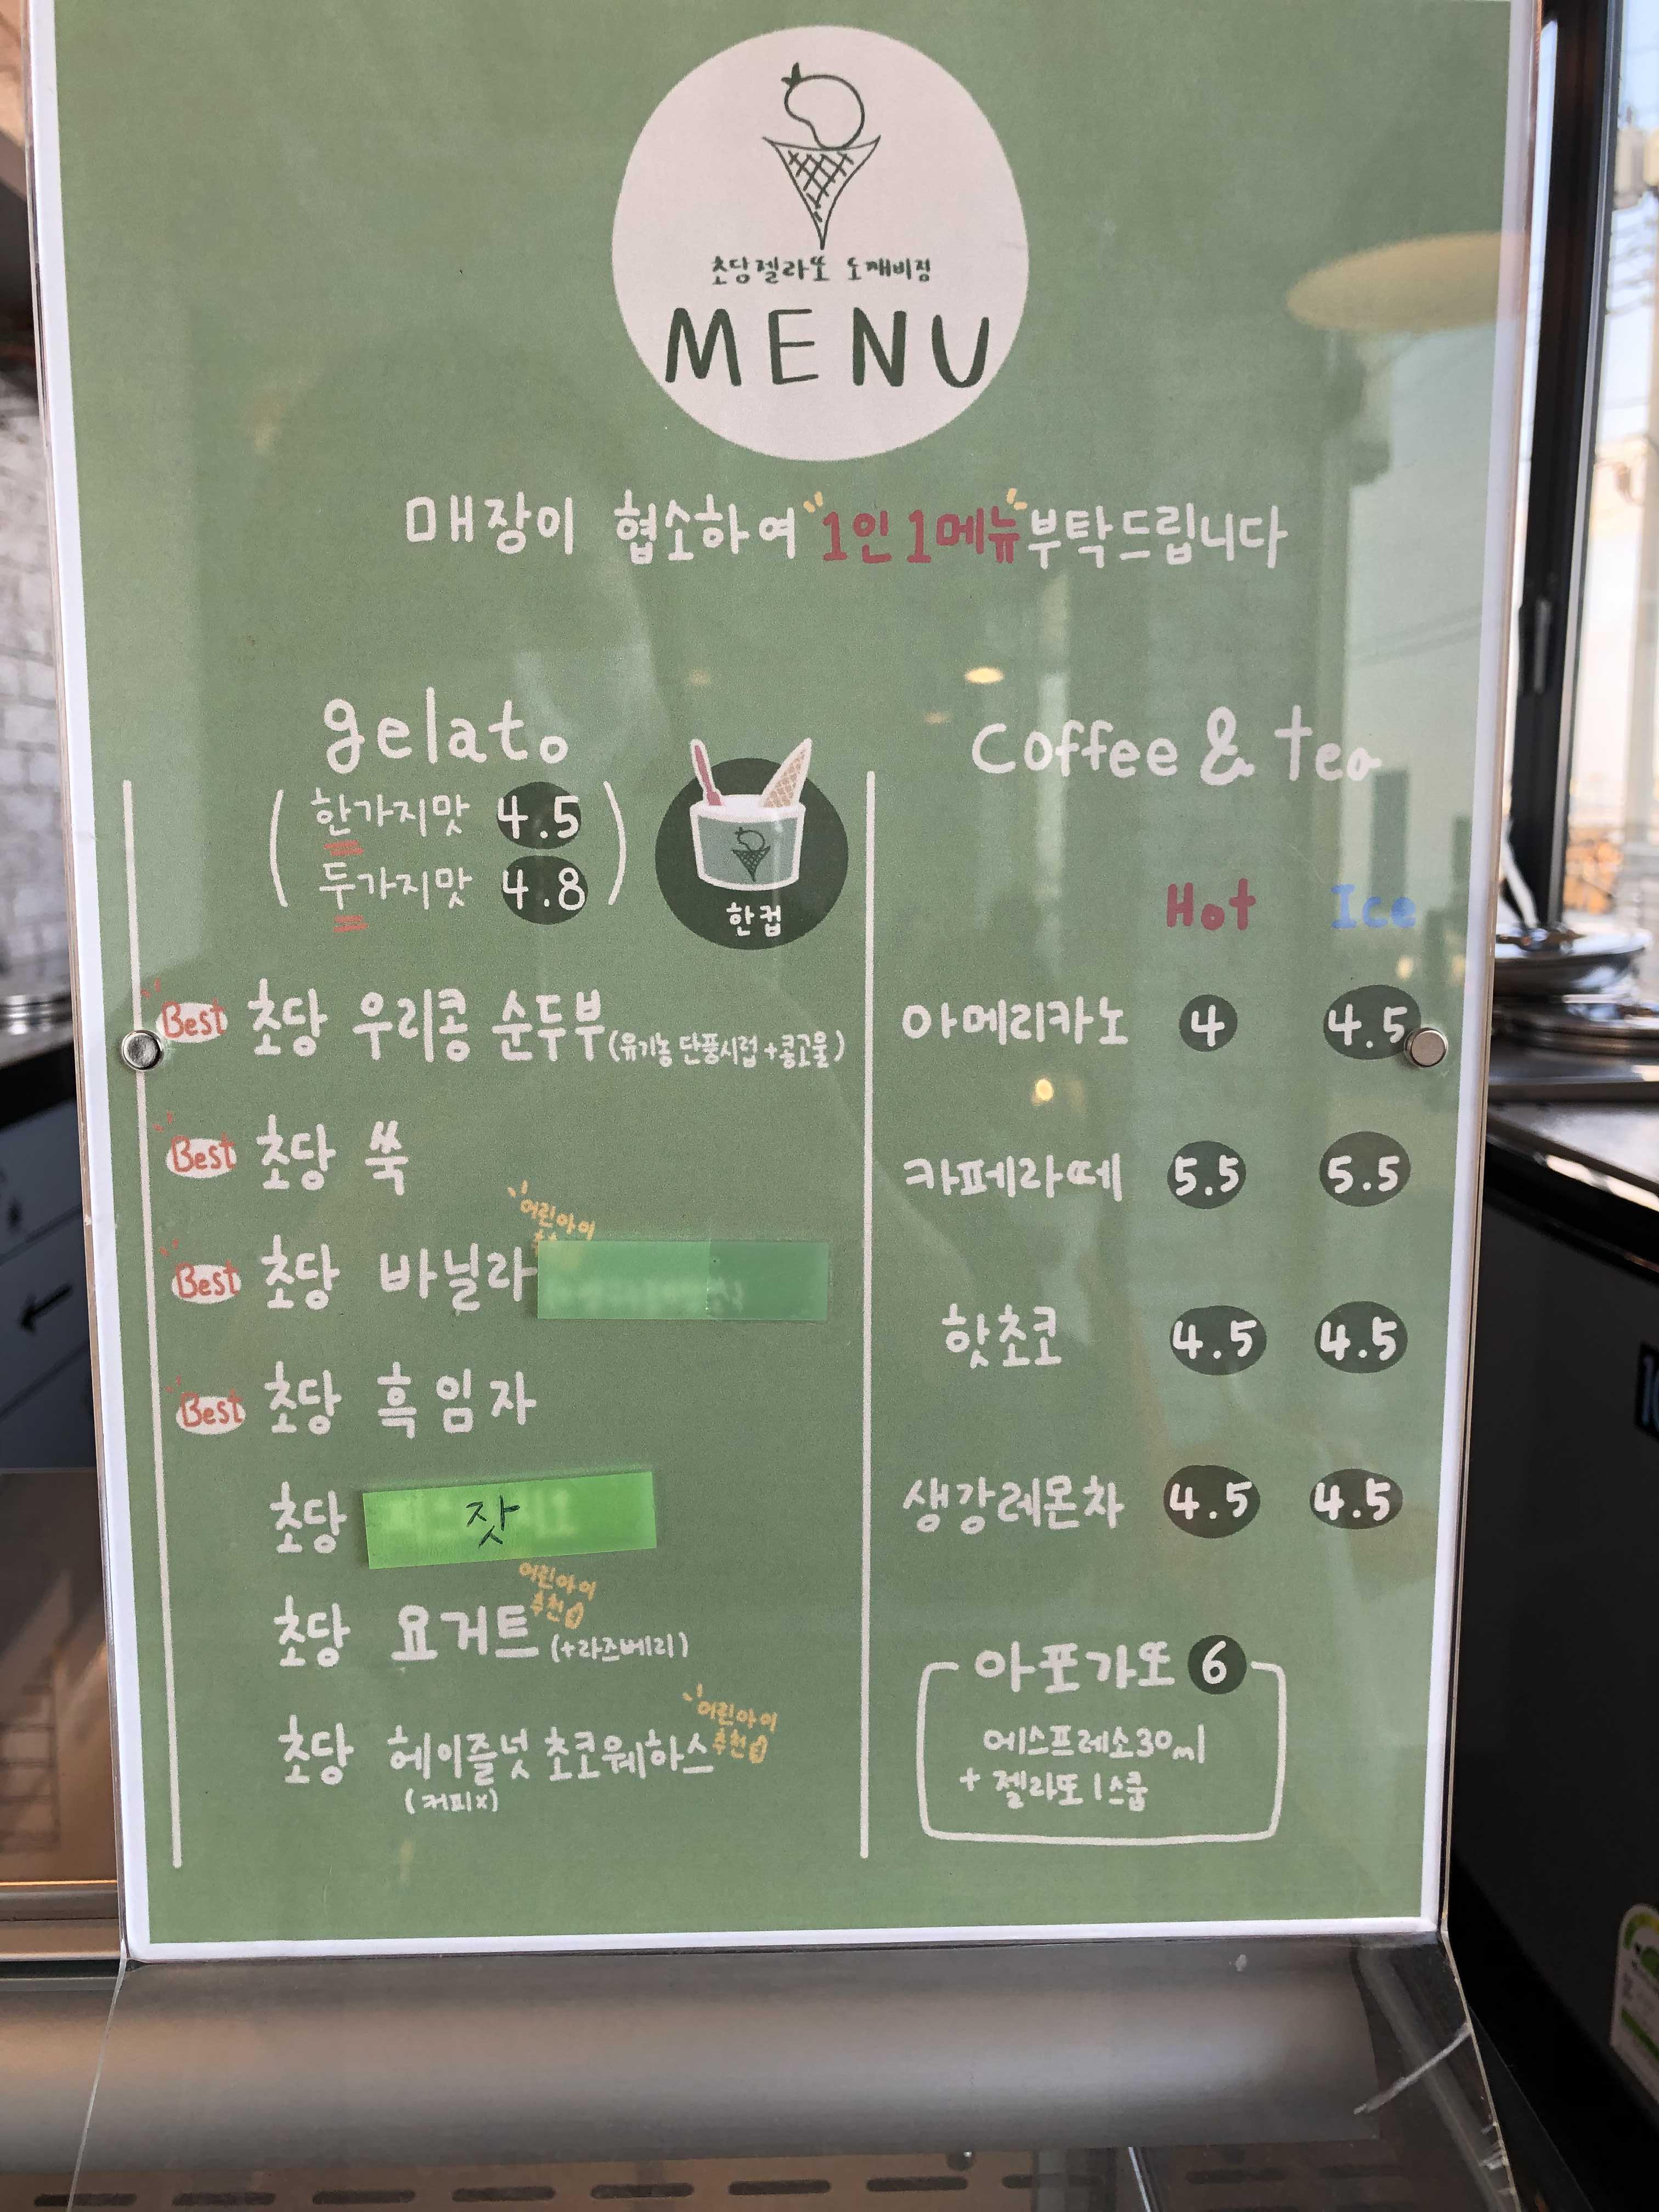 초당젤라또 도깨비점
MENU
매장이 협소하여 "1인 1메뉴" 부탁드립니다
gelato
(한가지맛 4.5
두가지맛 4.8)
한컵
Best 초당 우리콩 순두부 (유기농 단풍시럽+콩고물)
Best 초당 쑥
어린아이
Best 초당 바닐라
Best 초당 흑임자
초당 잣
어린아이
추천
초당 요거트 (+라즈베리)
어린아이
추천
초당 헤이즐넛 초코웨하스
(커피x)
Coffee & tea
Hot Ice
아메리카노 4 4.5
카페라떼 5.5 5.5
핫초코 4.5 4.5
생강레몬차 4.5 4.5
아포가또 6
에스프레소30ml
+ 젤라또 1스쿱